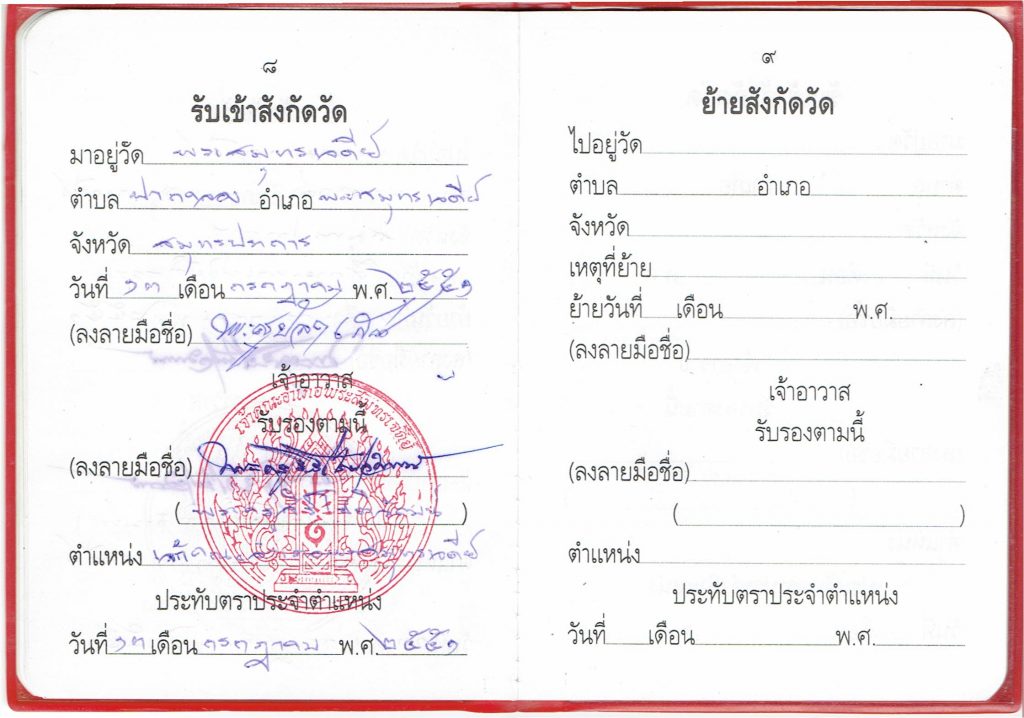 ๘
รับเข้าสังกัดวัด
มาอยู่วัด พระสมุทรเจดีย์
ตำบล ปากคลอง อำเภอ พระสมุทรเจดีย์
จังหวัด สมุทรปราการ
วันที่ ๑๓ เดือน กรกฎาคม พ.ศ. ๒๕๕๑
(ลงลายมือชื่อ)
เจ้าอาวาส
เจ้าคณะอำเภอพระสมุทรเจดีย์
รับรองตามนี้
(ลงลายมือชื่อ)
( )
ตำแหน่ง เจ้าคณะอำเภอพระสมุทรเจดีย์
ประทับตราประจำตำแหน่ง
วันที่ ๑๓ เดือน กรกฎาคม พ.ศ. ๒๕๕๑
๙
ย้ายสังกัดวัด
ไปอยู่วัด
ตำบล อำเภอ
จังหวัด
เหตุที่ย้าย
ย้ายวันที่ เดือน พ.ศ.
(ลงลายมือชื่อ)
เจ้าอาวาส
รับรองตามนี้
(ลงลายมือชื่อ)
( )
ตำแหน่ง
ประทับตราประจำตำแหน่ง
วันที่ เดือน พ.ศ.